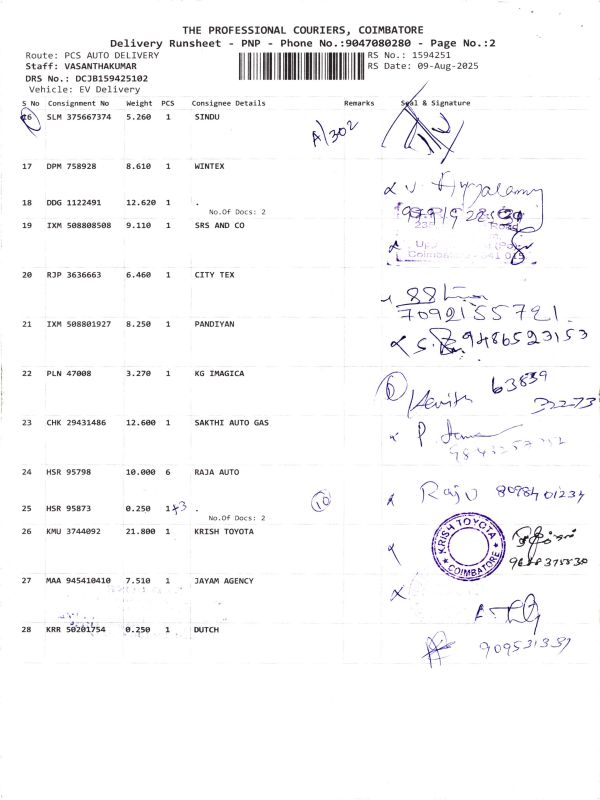 THE PROFESSIONAL COURIERS, COIMBATORE
Delivery Runsheet - PNP - Phone No.:9047080280 - Page No.:2
Route: PCS AUTO DELIVERY RS No.: 1594251
Staff: VASANTHAKUMAR RS Date: 09-Aug-2025
DRS No.: DCJB159425102
Vehicle: EV Delivery
S No Consignment No Weight PCS Consignee Details Remarks Seal & Signature
16 SLM 375667374 5.260 1 SINDU
A/302
17 DPM 758928 8.610 1 WINTEX
18 DDG 1122491 12.620 1 .
No.Of Docs: 2
19 IXM 508808508 9.110 1 SRS AND CO
20 RJP 3636663 6.460 1 CITY TEX
7092155721
21 IXM 508801927 8.250 1 PANDIYAN
9486523153
22 PLN 47008 3.270 1 KG IMAGICA
63839
32273
23 CHK 29431486 12.600 1 SAKTHI AUTO GAS
24 HSR 95798 10.000 6 RAJA AUTO
Raju 8098401234
25 HSR 95873 0.250 1+3 .
10
No.Of Docs: 2
26 KMU 3744092 21.800 1 KRISH TOYOTA
KRISH TOYOTA
COIMBATORE
27 MAA 945410410 7.510 1 JAYAM AGENCY
28 KRR 50201754 0.250 1 DUTCH